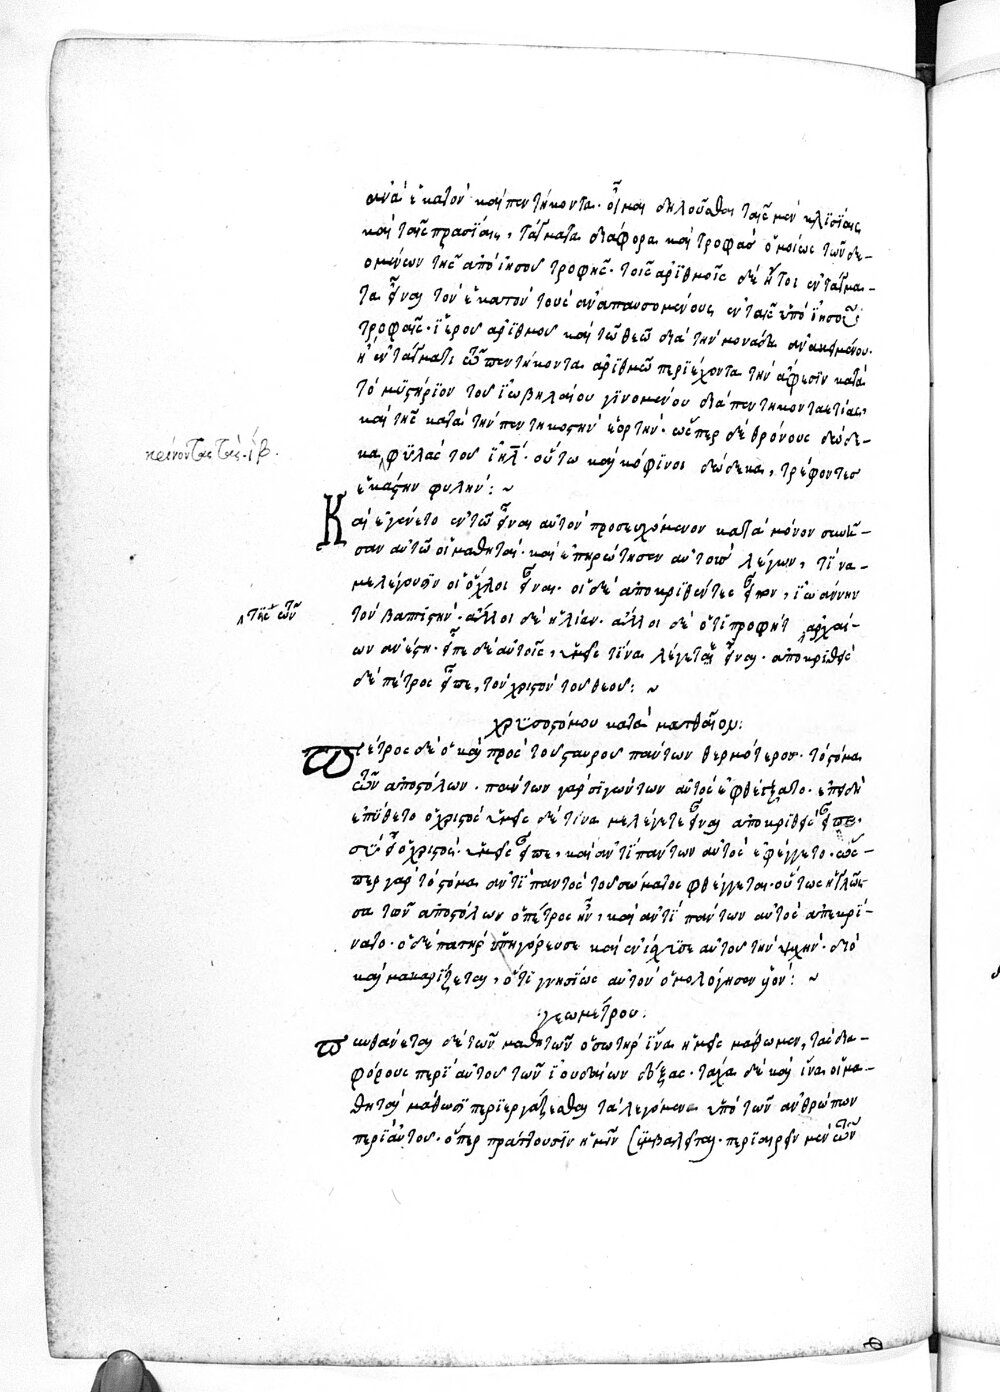 ἀνὰ ἑκατὸν καὶ πεντήκοντα. οἶμαι δηλοῦσθαι ταῖς μὲν κλισίαις
καὶ ταῖς πρασίαις, τάγματα διάφορα καὶ τροφὰς ὁμοίως τῶν δε-
ομένων τῆς ἀπὸ ἰησοῦ τροφῆς. τοῖς ἀριθμοῖς δὲ ἤτοι ἐν τάγμα-
τι εἶναι τὸν ἑκατὸν τοὺς ἀναπαυσομένους ἐν ταῖς ὑπὸ ἰησοῦ
τροφαῖς. ἱεροῦ ἀριθμοῦ καὶ τῶ θεῶ διὰ τὴν μονάδα ἀνακειμένου.
ἢ ἐν τάγματι τῶ πεντήκοντα ἀριθμῶ περιέχοντα τὴν ἄφεσιν κατὰ
τὸ μυστήριον τοῦ ἰωβηλαίου γινομένου διὰ πεντηκονταετίας,
καὶ τῆς κατὰ τὴν πεντηκοστὴν ἑορτήν. ὥσπερ δὲ θρόνους δώδε-
κα φυλὰς τοῦ ἰηλ. οὕτω καὶ κόφινοι δώδεκα, τρέφοντες
κρίνοντας τὰς ιβ.
ἑκάστην φυλήν: ~
Καὶ ἐγένετο ἐν τῶ εἶναι αὐτὸν προσευχόμενον κατὰ μόνον συνῆ-
σαν αὐτῶ οἱ μαθηταί. καὶ ἐπηρώτησεν αὐτοὺς λέγων, τίνα
με λέγουσιν οἱ ὄχλοι εἶναι. οἱ δὲ ἀποκριθέντες εἶπον, ἰωάννην
τὸν βαπτιστήν. ἄλλοι δὲ ἠλίαν. ἄλλοι δὲ ὅτι προφήτ ἀρχαί-
της τῶν
ων ἀνέστη. εἶπε δὲ αὐτοῖς, ὑμεῖς τίνα λέγεται εἶναι. ἀποκριθεὶς
δὲ πέτρος εἶπε, τὸν χριστὸν τοῦ θεοῦ: ~
χρυσοστόμου κατὰ ματθαῖον:
Πέτρος δὲ ὁ καὶ πρὸς τοῦ σταυροῦ πάντων θερμότερος. τὸ στόμα
τῶν ἀποστόλων. πάντων γὰρ σιγώντων αὐτὸς ἐφθέγξατο. ἐπειδὴ
ἐπύθετο ὁ χριστὸς ὑμεῖς δὲ τίνα με λέγετε εἶναι ἀποκριθεὶς εἶπε.
σὺ εἶ ὁ χριστός. ὑμεῖς εἶπε, καὶ ἀντὶ πάντων αὐτὸς ἐφθέγγετο. ὥς-
περ γὰρ τὸ στόμα ἀντὶ παντὸς τοῦ σώματος φθέγγεται. οὕτως ἡ γλῶς-
σα τῶν ἀποστόλων ὁ πέτρος ἦν, καὶ ἀντὶ πάντων αὐτὸς ἀπεκρί-
νατο. ὁ δὲ πατὴρ ὑπηγόρευσε καὶ ἐνίσχυσε αὐτοῦ τὴν ψυχήν. διὸ
καὶ μακαρίζεται, ὅτι γνησίως αὐτὸν ὁμολόγησεν υἱόν: ~
γεωμέτρου.
Πυνθάνεται δὲ τῶν μαθητῶν ὁ σωτὴρ ἵνα ἡμεῖς μάθωμεν, τὰς δια-
φόρους περὶ αὐτοῦ τῶν ἰουδαίων δόξας. τάχα δὲ καὶ ἵνα οἱ μα-
θηταὶ μάθωσι περιεργάζεσθαι τὰ λεγόμενα ὑπὸ τῶν ἀνθρώπων
περὶ αὐτοῦ. ὅπερ πράττουσιν ἡμῖν συμβάλλεται. περιαιρεῖν μὲν τῶν